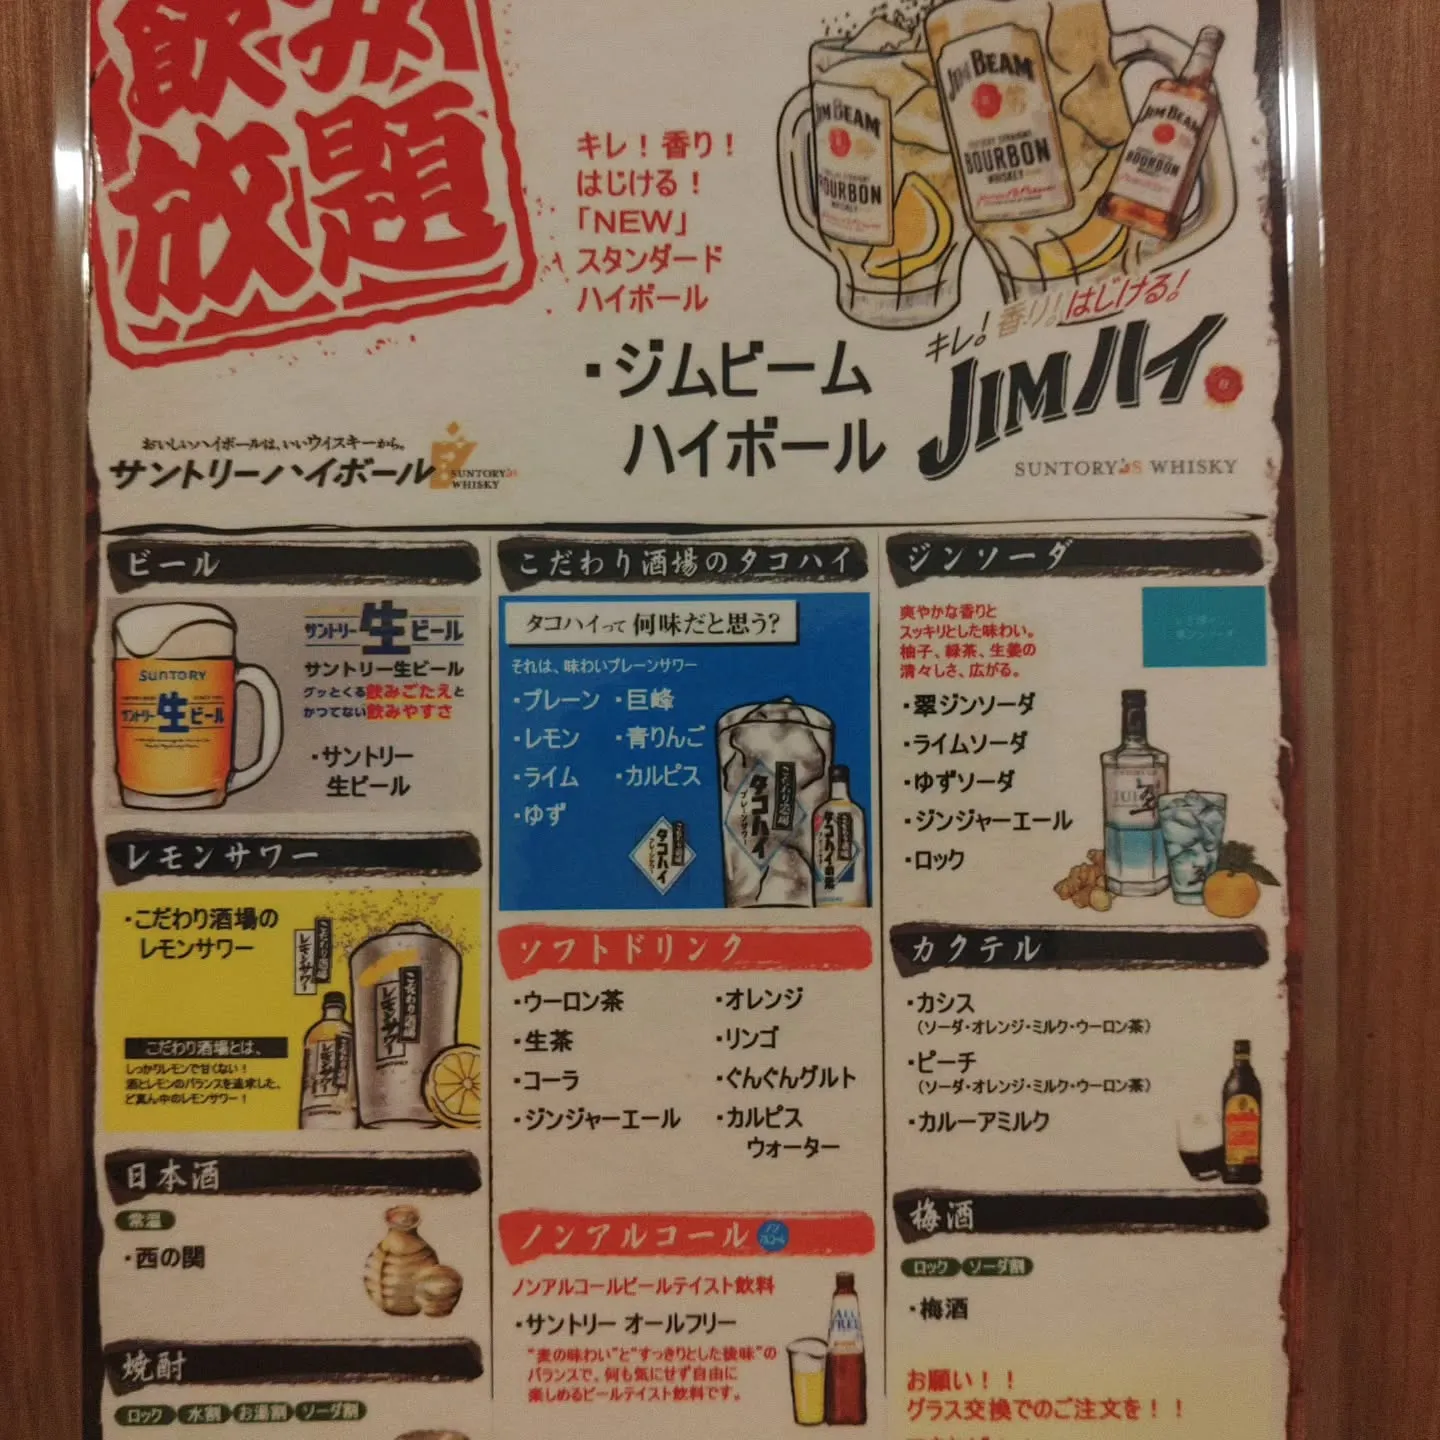 飲み
放題
キレ！香り！
はじける！
「NEW」
スタンダード
ハイボール
・ジムビーム
ハイボール
JIM BEAM
BOURBON
WHISKEY
JIM BEAM
BOURBON
WHISKEY
JIM BEAM
BOURBON
WHISKEY
キレ！香り！はじける！
JIMハイ。
SUNTORY's WHISKY
おいしいハイボールは、いいウイスキーから。
サントリーハイボール
SUNTORY's
WHISKY
ビール
SUNTORY
サントリー生ビール
サントリー生ビール
サントリー生ビール
グッとくる飲みごたえと
かつてない飲みやすさ
・サントリー
生ビール
レモンサワー
・こだわり酒場の
レモンサワー
こだわり酒場の
レモンサワー
こだわり酒場の
レモンサワー
こだわり酒場とは、
しっかりレモンで甘くない！
酒とレモンのバランスを追求した、
ど真ん中のレモンサワー！
日本酒
常温
・西の関
焼酎
ロック 水割 お湯割 ソーダ割
こだわり酒場のタコハイ
タコハイって何味だと思う？
それは、味わいプレーンサワー
・プレーン ・巨峰
・レモン ・青りんご
・ライム ・カルピス
・ゆず
こだわり酒場
タコハイ
プレーンサワー
こだわり酒場
タコハイ
プレーンサワー
タコハイの素
ソフトドリンク
・ウーロン茶 ・オレンジ
・生茶 ・リンゴ
・コーラ ・ぐんぐんグルト
・ジンジャーエール ・カルピス
ウォーター
ノンアルコール
ノンアルコールビールテイスト飲料
・サントリー オールフリー
"麦の味わい"と"すっきりとした後味"の
バランスで、何も気にせず自由に
楽しめるビールテイスト飲料です。
ALL
FREE
ジンソーダ
爽やかな香りと
スッキリとした味わい。
柚子、緑茶、生姜の
清々しさ、広がる。
・翠ジンソーダ
・ライムソーダ
・ゆずソーダ
・ジンジャーエール
・ロック
翠
カクテル
・カシス
（ソーダ・オレンジ・ミルク・ウーロン茶）
・ピーチ
（ソーダ・オレンジ・ミルク・ウーロン茶）
・カルーアミルク
梅酒
ロック ソーダ割
・梅酒
お願い！！
グラス交換でのご注文を！！